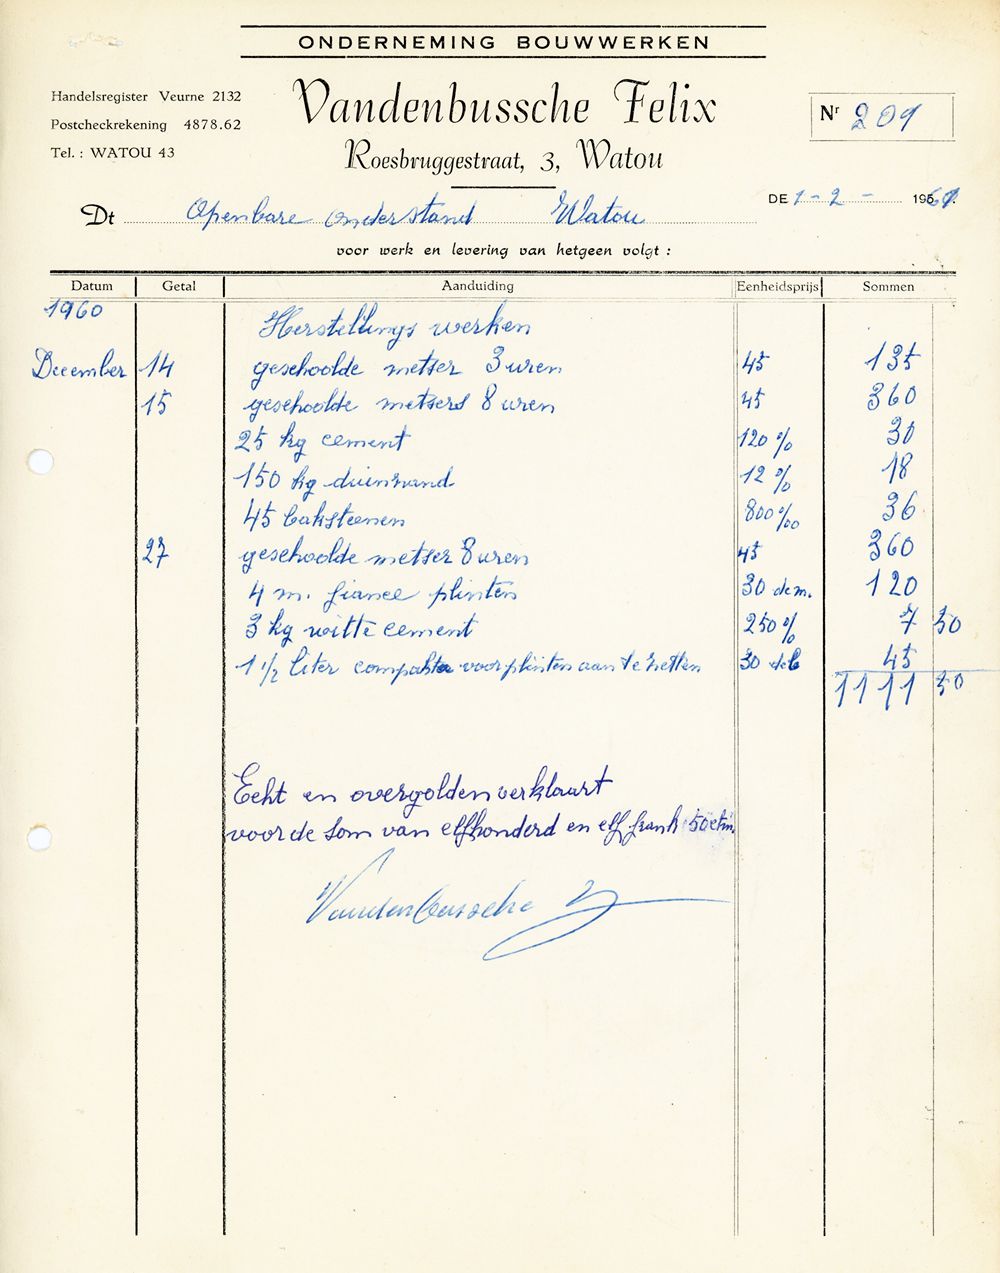 ONDERNEMING BOUWWERKEN
Handelsregister Veurne 2132
Postcheckrekening 4878.62
Tel. : WATOU 43
Vandenbussche Felix
Roesbruggestraat, 3, Watou
Nr 209
DE 1-2- 1961.
Dt Openbare onderstand Watou
voor werk en levering van hetgeen volgt :
Datum Getal Aanduiding Eenheidsprijs Sommen
1960 Herstellings werken
December 14 geschoolde metser 3 uren 45 135
15 geschoolde metsers 8 uren 45 360
25 kg cement 120 % 30
150 kg duinzand 12 % 18
45 baksteenen 800 ‰ 36
27 geschoolde metser 8 uren 45 360
4 m. fiance plinten 30 de m. 120
3 kg witte cement 250 % 7 50
1 1/2 liter compakta voor plinten aan te zetten 30 de l 45
1111 50
Echt en overgolden verklaart
voor de som van elfhonderd en elf frank 50 ctm.
Vandenbussche